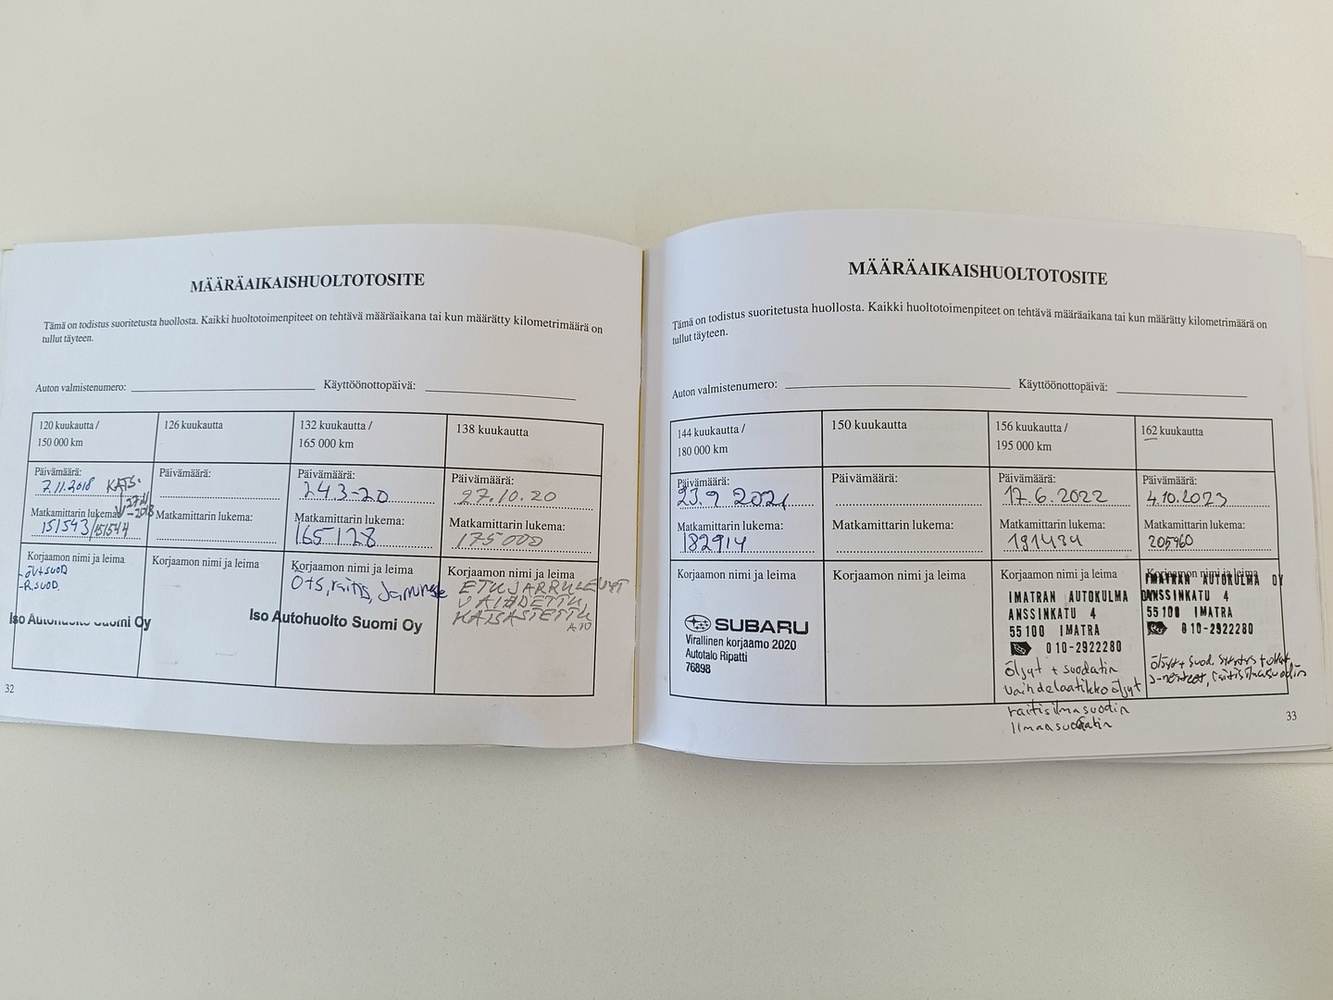 MÄÄRÄAIKAISHUOLTOTOSITE
Tämä on todistus suoritetusta huollosta. Kaikki huoltotoimenpiteet on tehtävä määräaikana tai kun määrätty kilometrimäärä on
tullut täyteen.
Auton valmistenumero: Käyttöönottopäivä:
120 kuukautta /
150 000 km
Päivämäärä:
7.11.2018 KATS.
Matkamittarin lukema:
151543/151544
Korjaamon nimi ja leima
-ÖV+SUOD
-R.SUOD.
Iso Autohuolto Suomi Oy
126 kuukautta
Päivämäärä:
Matkamittarin lukema:
Korjaamon nimi ja leima
132 kuukautta /
165 000 km
Päivämäärä:
24.3-20
Matkamittarin lukema:
165128
Korjaamon nimi ja leima
Öts, raitis,
Iso Autohuolto Suomi Oy
138 kuukautta
Päivämäärä:
27.10.20
Matkamittarin lukema:
175000
Korjaamon nimi ja leima
ETUJARRULEVYT
VAIHDETTU,
KATSASTETTU
32
MÄÄRÄAIKAISHUOLTOTOSITE
Tämä on todistus suoritetusta huollosta. Kaikki huoltotoimenpiteet on tehtävä määräaikana tai kun määrätty kilometrimäärä on
tullut täyteen.
Auton valmistenumero: Käyttöönottopäivä:
144 kuukautta /
180 000 km
Päivämäärä:
23.9 2021
Matkamittarin lukema:
182914
Korjaamon nimi ja leima
SUBARU
Virallinen korjaamo 2020
Autotalo Ripatti
76898
150 kuukautta
Päivämäärä:
Matkamittarin lukema:
Korjaamon nimi ja leima
156 kuukautta /
195 000 km
Päivämäärä:
17.6.2022
Matkamittarin lukema:
191434
Korjaamon nimi ja leima
IMATRAN AUTOKULMA
ANSSINKATU 4
55100 IMATRA
010-2922280
öljyt + suodatin
vaihdelaatikko öljyt
raitisilmasuodin
Ilmansuodatin
162 kuukautta
Päivämäärä:
4.10.2023
Matkamittarin lukema:
205960
Korjaamon nimi ja leima
IMATRAN AUTOKULMA OY
ANSSINKATU 4
55100 IMATRA
010-2922280
öljyt + suod.
J-nesteet, raitisilmasuodin
33